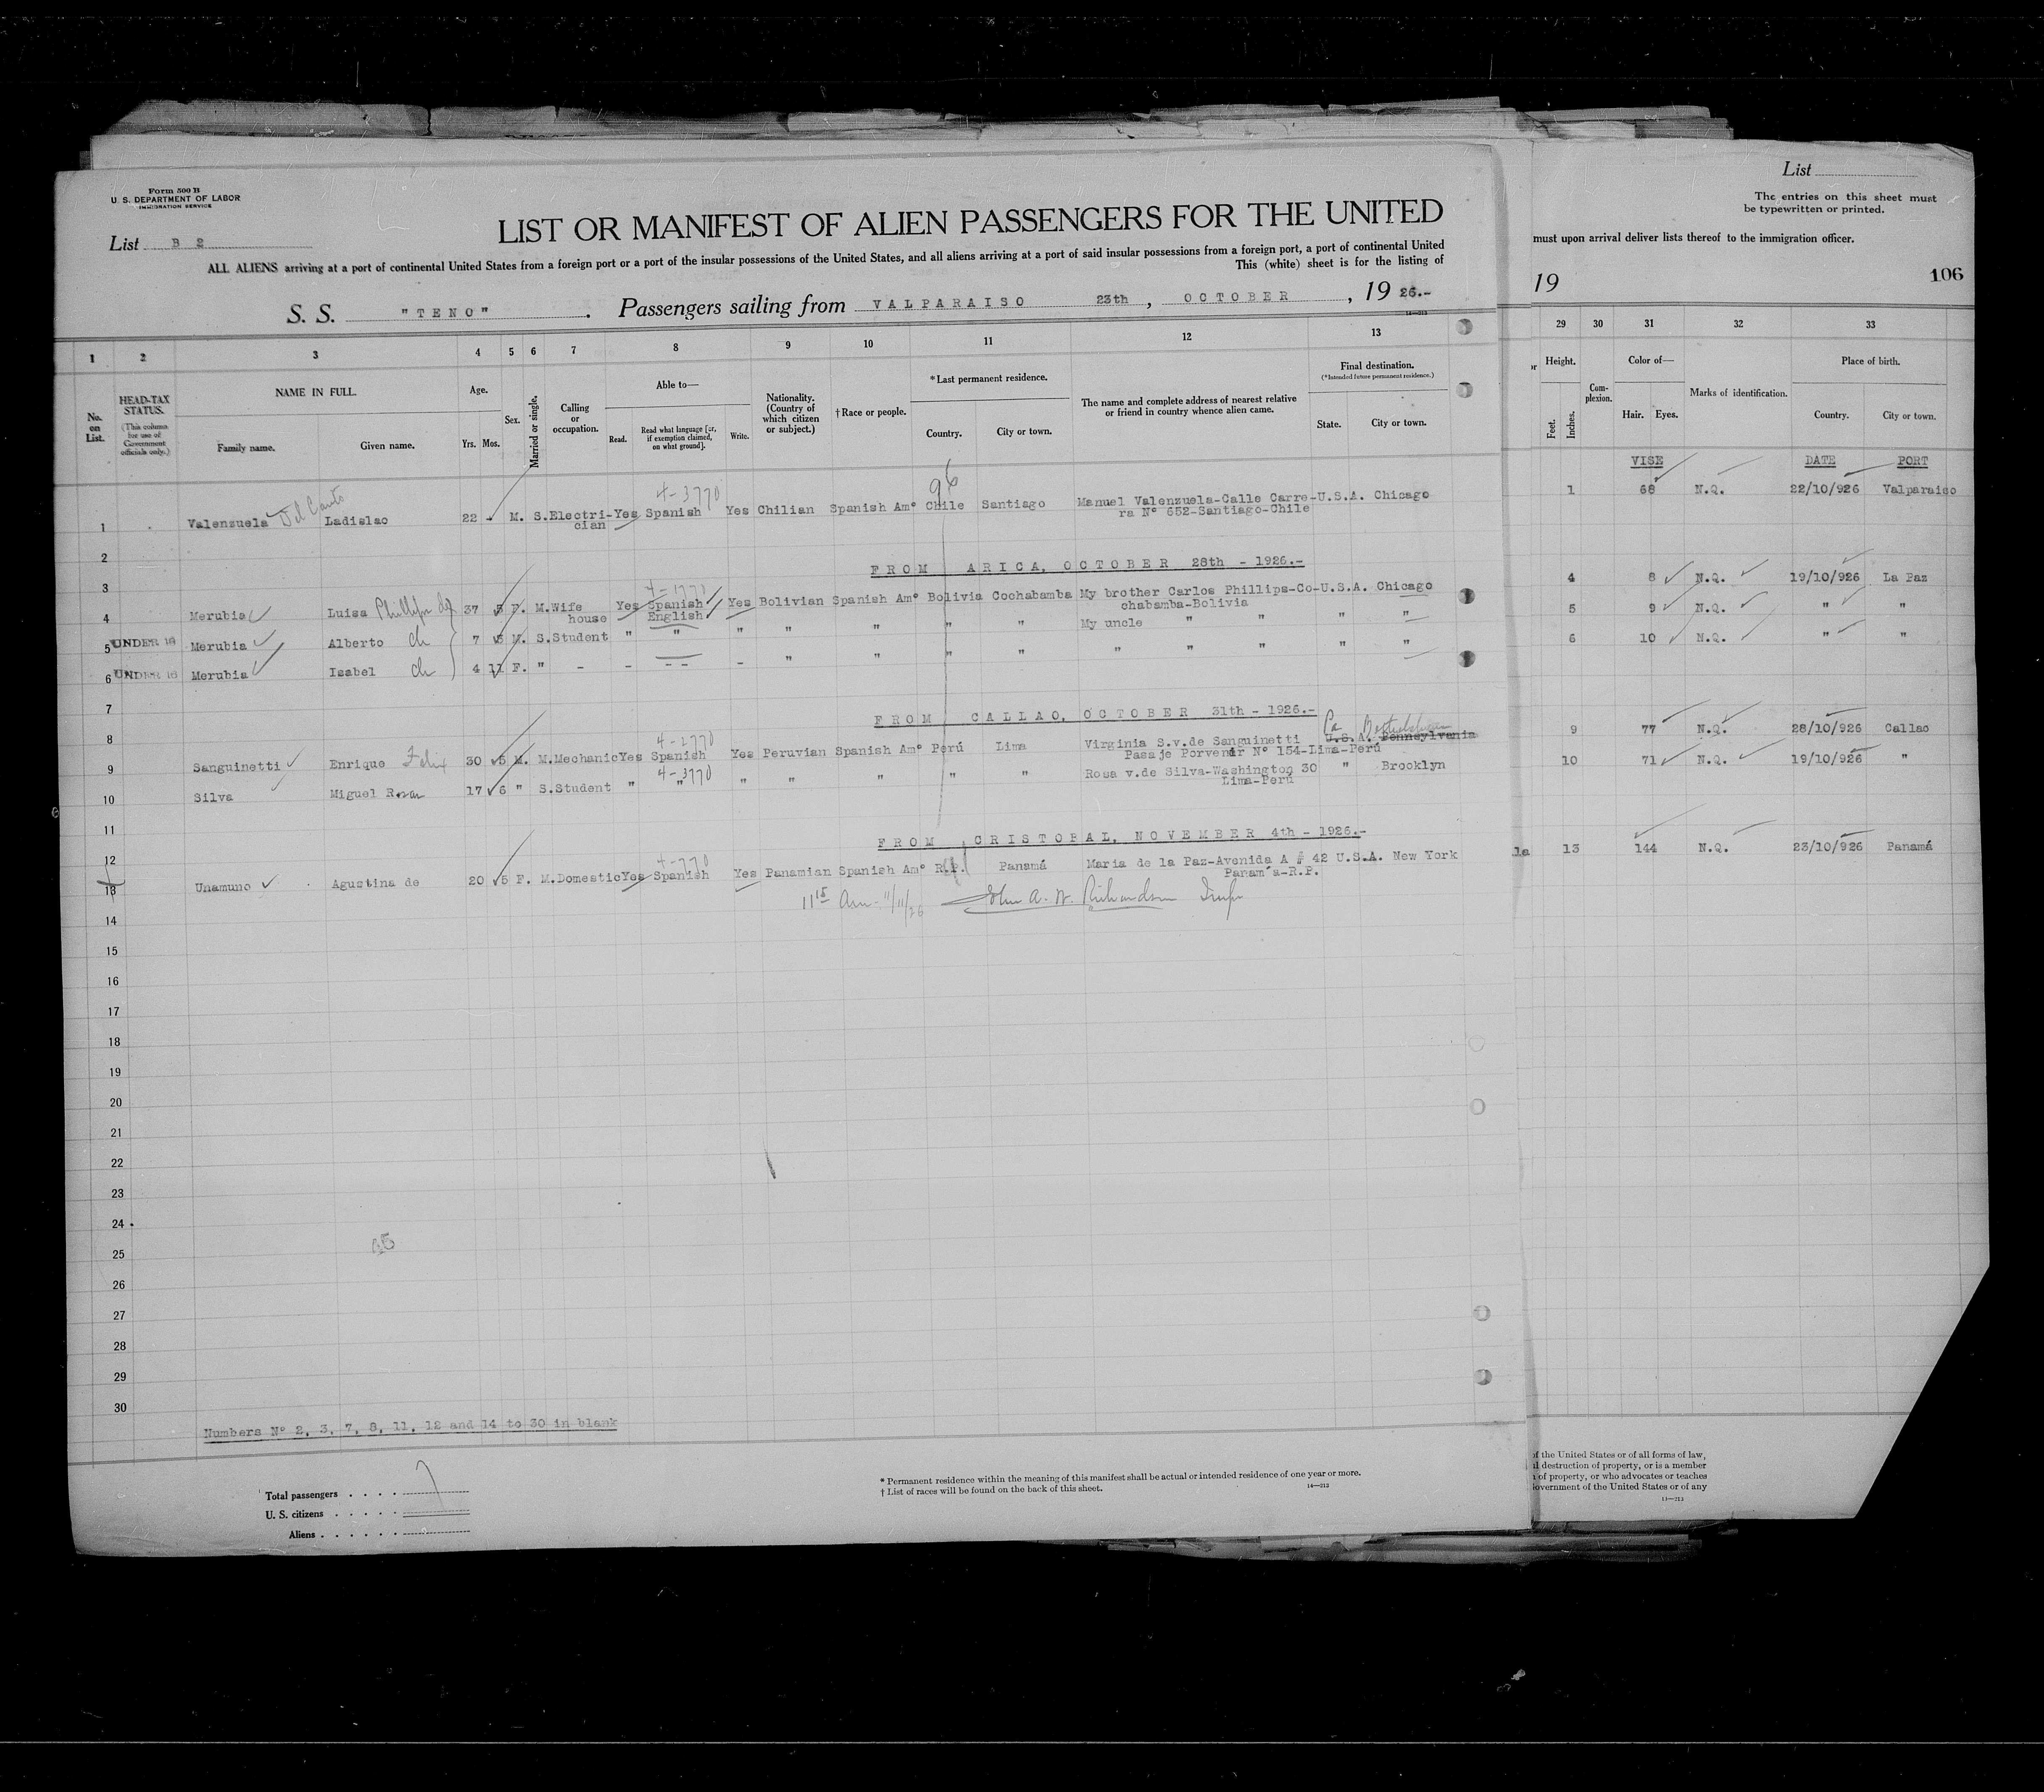 Form 500 B
U. S. DEPARTMENT OF LABOR
IMMIGRATION SERVICE
List B 2
LIST OR MANIFEST OF ALIEN PASSENGERS FOR THE UNITED
ALL ALIENS arriving at a port of continental United States from a foreign port or a port of the insular possessions of the United States, and all aliens arriving at a port of said insular possessions from a foreign port, a port of continental United
This (white) sheet is for the listing of
S. S. "TENO" . Passengers sailing from VALPARAISO 23th , OCTOBER , 19 26.-
14—213
1 2 3 4 5 6 7 8 9 10 11 12 13
No. on List.
HEAD-TAX STATUS.
(This column for use of Government officials only.)
NAME IN FULL.
Family name. Given name.
Age.
Yrs. Mos.
Sex.
Married or single.
Calling or occupation.
Able to—
Read. Read what language [or, if exemption claimed, on what ground]. Write.
Nationality. (Country of which citizen or subject.)
†Race or people.
*Last permanent residence.
Country. City or town.
The name and complete address of nearest relative or friend in country whence alien came.
Final destination.
(*Intended future permanent residence.)
State. City or town.
96
4-3770
1 Valenzuela Del Canto Ladislao 22 - M. S. Electri- Yes Spanish Yes Chilian Spanish Amº Chile Santiago Manuel Valenzuela-Calle Carre- U.S.A. Chicago
cian ra Nº 652-Santiago-Chile
2
FROM ARICA, OCTOBER 28th - 1926.-
3
4 Merubia Luisa 37 5 F. M. Wife Yes Spanish Yes Bolivian Spanish Amº Bolivia Cochabamba My brother Carlos Phillips-Co- U.S.A. Chicago
house English chabamba-Bolivia
5 UNDER 16 Merubia Alberto ch 7 5 M. S. Student " " " " " " " My uncle " " " "
6 UNDER 16 Merubia Isabel ch 4 11 F. " - - -- - " " " " " " " " "
7
FROM CALLAO, OCTOBER 31th - 1926.-
8
4-2770
Pa
9 Sanguinetti Enrique Felix 30 5 M. M. Mechanic Yes Spanish Yes Peruvian Spanish Amº Perú Lima Virginia S.v.de Sanguinetti U.S.A. Pennsylvania
Pasaje Porvenir Nº 154-Lima-Perú
4-3770
10 Silva Miguel 17 6 " S. Student " " " " " " " Rosa v.de Silva-Washington 30 " Brooklyn
Lima-Perú
11
FROM CRISTOBAL, NOVEMBER 4th - 1926.-
12
4-770
13 Unamuno Agustina de 20 5 F. M. Domestic Yes Spanish Yes Panamian Spanish Amº R.P. Panamá Maria de la Paz-Avenida A # 42 U.S.A. New York
Panam´a-R.P.
11 15 Am- 11/11/26 John A. W. Richardson Insp
14
15
16
17
18
19
20
21
22
23
24
25
26
27
28
29
30
Numbers Nº 2, 3, 7, 8, 11, 12 and 14 to 30 in blank
Total passengers . . . . 7
U. S. citizens . . . . .
Aliens . . . . . .
* Permanent residence within the meaning of this manifest shall be actual or intended residence of one year or more.
† List of races will be found on the back of this sheet.
14—213
List
The entries on this sheet must
be typewritten or printed.
must upon arrival deliver lists thereof to the immigration officer.
19
106
29 30 31 32 33
or Height.
Feet. Inches.
Com-plexion.
Color of—
Hair. Eyes.
Marks of identification.
Place of birth.
Country. City or town.
VISE DATE PORT
1 68 N.Q. 22/10/926 Valparaiso
4 8 N.Q. 19/10/926 La Paz
5 9 N.Q. " "
6 10 N.Q. " "
9 77 N.Q. 28/10/926 Callao
10 71 N.Q. 19/10/926 "
la 13 144 N.Q. 23/10/926 Panamá
of the United States or of all forms of law,
destruction of property, or is a member
of property, or who advocates or teaches
overnment of the United States or of any
14—213